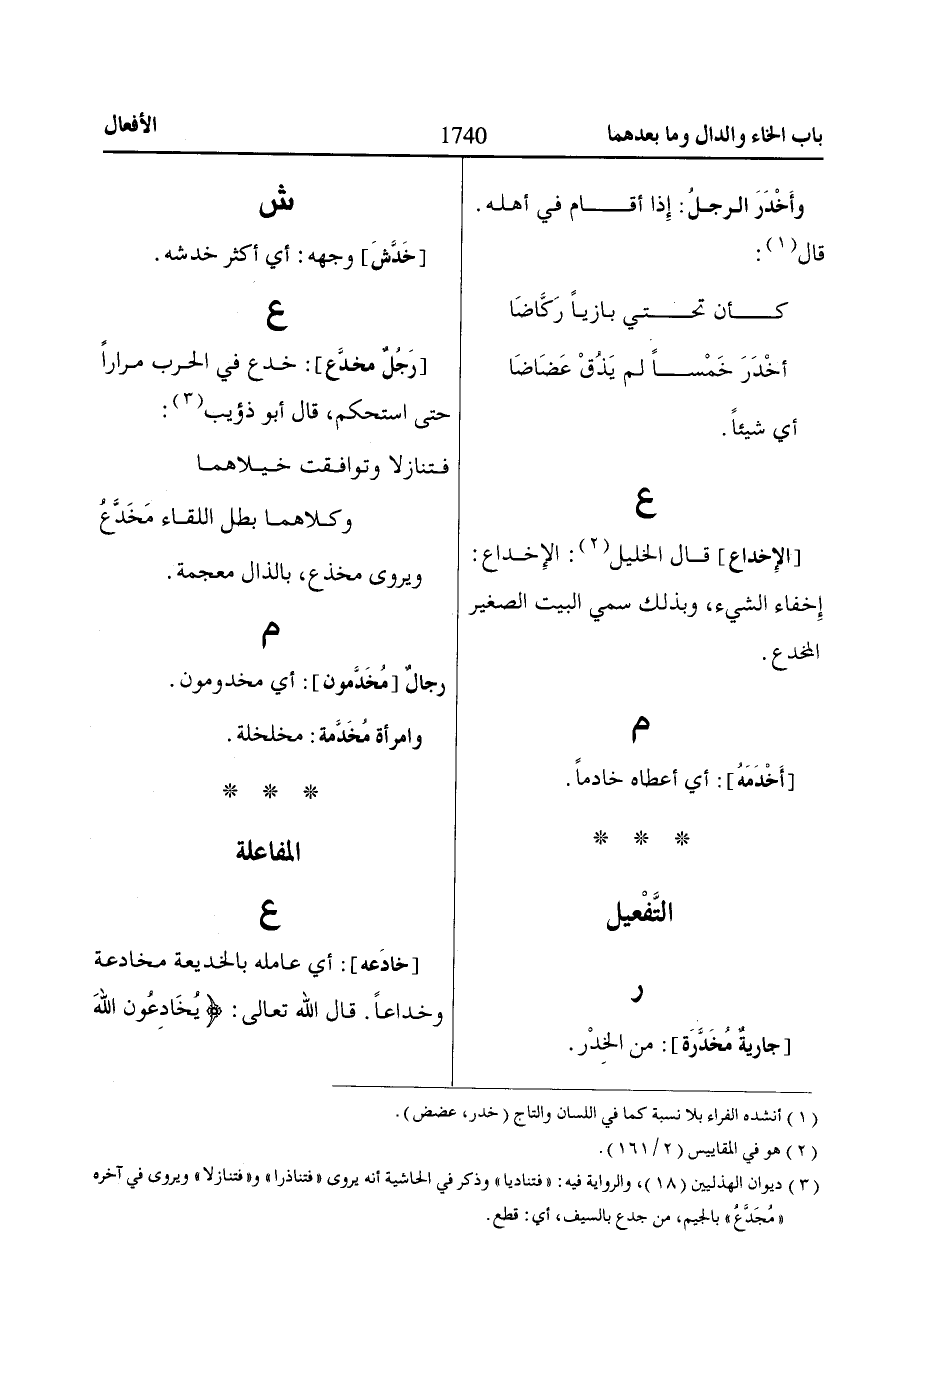 باب الخاء والدال وما بعدهما
1740
الأفعال
وأَخْدَرَ الرجلُ: إِذا أقام في أهله.
قال(١):
كأن تحتي بازياً رَكَّاضَا
أخْدَرَ خَمْساً لم يَذُقْ عَضَاضَا
أي شيئاً.
ع
[الإخداع] قال الخليل(٢): الإخداع:
إِخفاء الشيء، وبذلك سمي البيت الصغير
المخدع.
م
[أَخْدَمَهُ]: أي أعطاه خادماً.
* * *
التَّفْعيل
ر
[جاريةٌ مُخَدَّرَة]: من الخِدْر.
ش
[خَدَّشَ] وجهه: أي أكثر خدشه.
ع
[رَجُلٌ مخدَّع]: خدع في الحرب مراراً
حتى استحكم، قال أبو ذؤيب(٣):
فتنازلا وتوافقت خيلاهما
وكلاهما بطل اللقاء مَخَدَّعُ
ويروى مخذع، بالذال معجمة.
م
رجالٌ [مُخَدَّمون]: أي مخدومون.
وامرأة مُخَدَّمة: مخلخلة.
* * *
المفاعلة
ع
[خادَعه]: أي عامله بالخديعة مخادعة
وخداعاً. قال الله تعالى: ﴿يُخَادِعُون اللهَ
(١) أنشده الفراء بلا نسبة كما في اللسان والتاج (خدر، عضض).
(٢) هو في المقاييس (٢/١٦١).
(٣) ديوان الهذليين (١٨)، والرواية فيه: «فتناديا» وذكر في الحاشية أنه يروى «فتناذرا» و«فتنازلا» ويروى في آخره
«مُجَدَّعُ» بالجيم، من جدع بالسيف، أي: قطع.